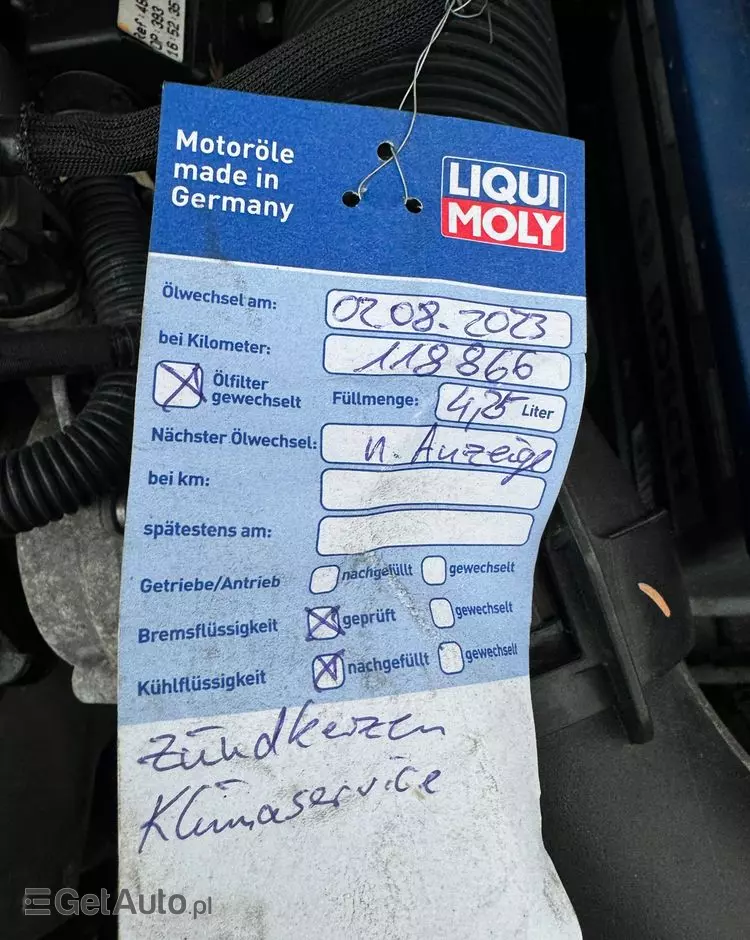 16:52:35
Motoröle
made in
Germany
LIQUI
MOLY
Ölwechsel am: 02 08. 2023
bei Kilometer: 118 866
Ölfilter
gewechselt
Füllmenge: 4,25 Liter
Nächster Ölwechsel: n. Anzeige
bei km:
spätestens am:
Getriebe/Antrieb nachgefüllt gewechselt
Bremsflüssigkeit geprüft gewechselt
Kühlflüssigkeit nachgefüllt gewechselt
Zündkerzen
Klimaservice
GetAuto.pl